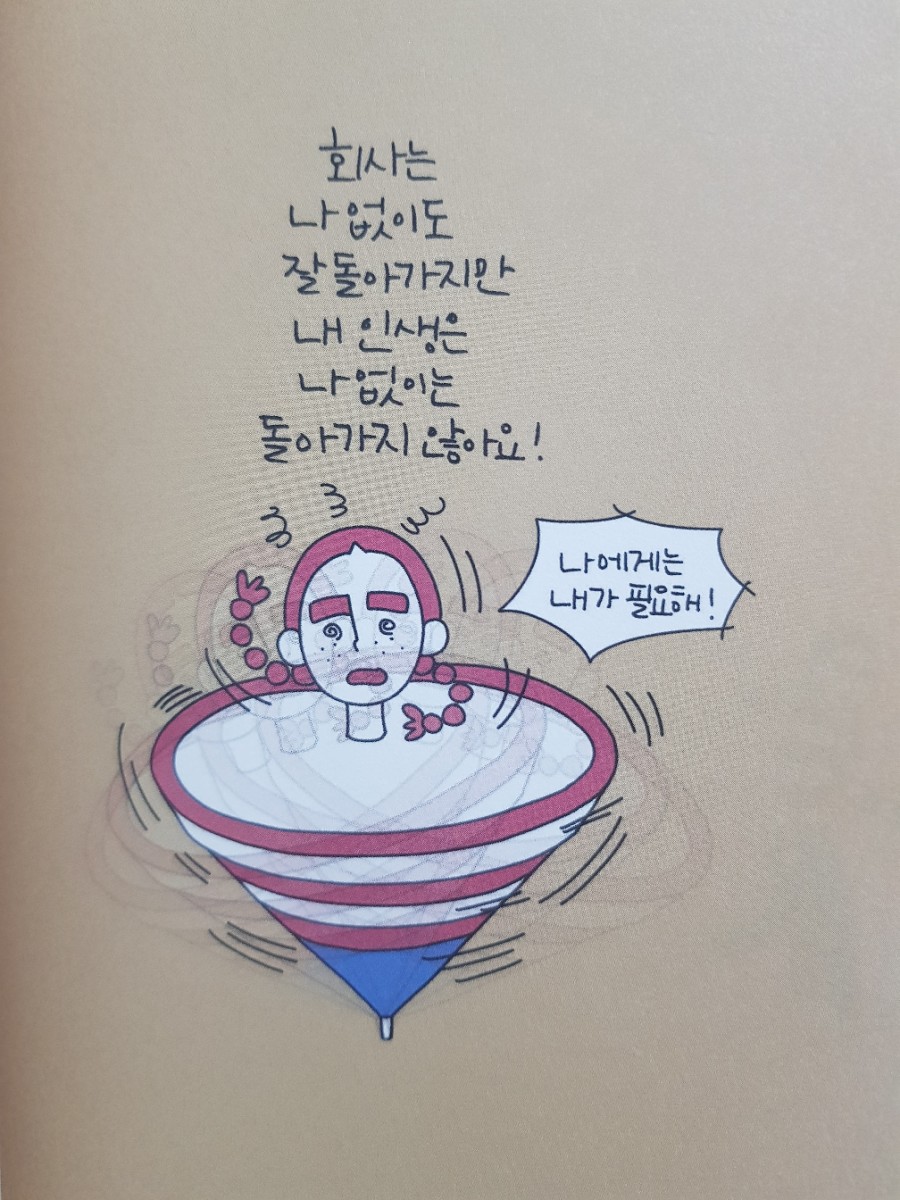 회사는
나 없이도
잘 돌아가지만
내 인생은
나 없이는
돌아가지 않아요!
나에게는
내가 필요해!